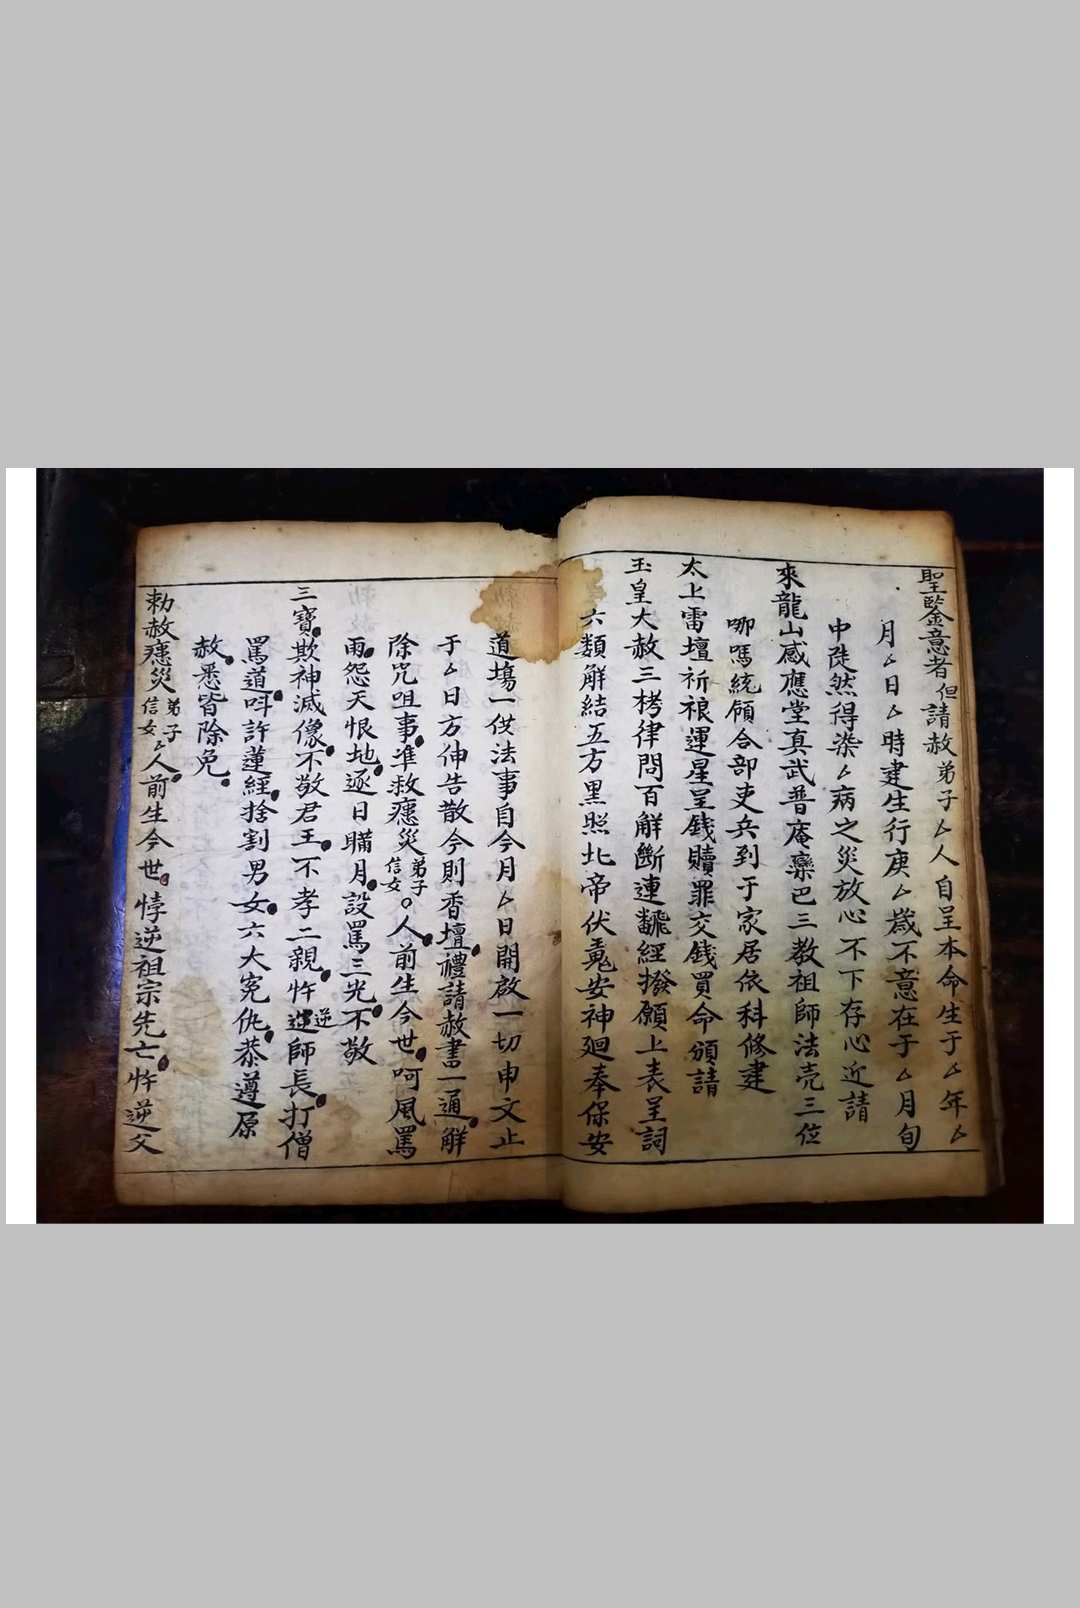 聖監意者但請赦弟子厶人自呈本命生于厶年厶
月厶日厶時建生行庚厶歲不意在于厶月旬
中陡然得染厶病之災放心不下存心近請
來龍山感應堂真武普庵欒巴三教祖師法壳三位
唧嗎統領合部吏兵到于家居依科修建
太上雷壇祈禳運星呈錢贖罪交錢買命頒請
玉皇大赦三栲律問百解斷連飜經撥願上表呈詞
六類解結五方黑照北帝伏䰡安神廻奉保安
道塲一伩法事自今月厶日開啟一切申文止
于厶日方伸告散今則香壇禮請赦書一通解
除咒咀事准赦瘛災弟子信女○人前生今世呵風罵
雨怨天恨地逐日瞒月設罵三光不敬
三寶欺神滅像不敬君王不孝二親忤逆師長打僧
罵道呌許蓮經捨割男女六大寃仇恭遵原
赦悉皆除免
勅赦瘛災弟子信女厶人前生今世悖逆祖宗先亡忤逆父